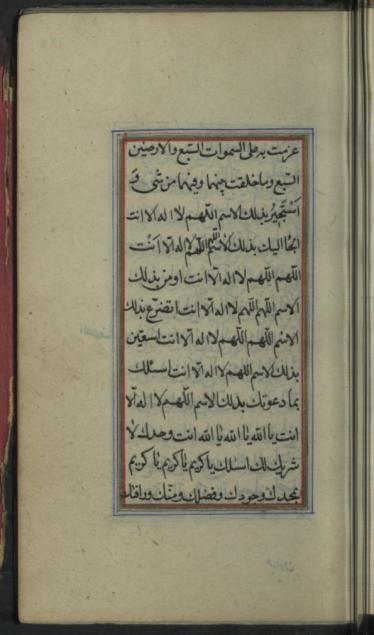 عزمت به على السموات السبع والارضين
السبع وما خلقت بينهما وفيهما من شئ و
استجير بذلك الاسم اللهم لا اله الا انت
الجا اليك بذلك الاسم اللهم لا اله الا انت
اللهم اللهم لا اله الا انت اومن بذلك
الاسم اللهم اللهم لا اله الا انت اتضرع بذلك
الاسم اللهم اللهم لا اله الا انت استعين
بذلك الاسم اللهم لا اله الا انت اسئلك
بما دعوتك بذلك الاسم اللهم لا اله الا
انت يا الله يا الله يا الله انت وحدك لا
شريك لك اسئلك يا كريم يا كريم يا كريم
بمجدك وجودك وفضلك ومنك ورافتك